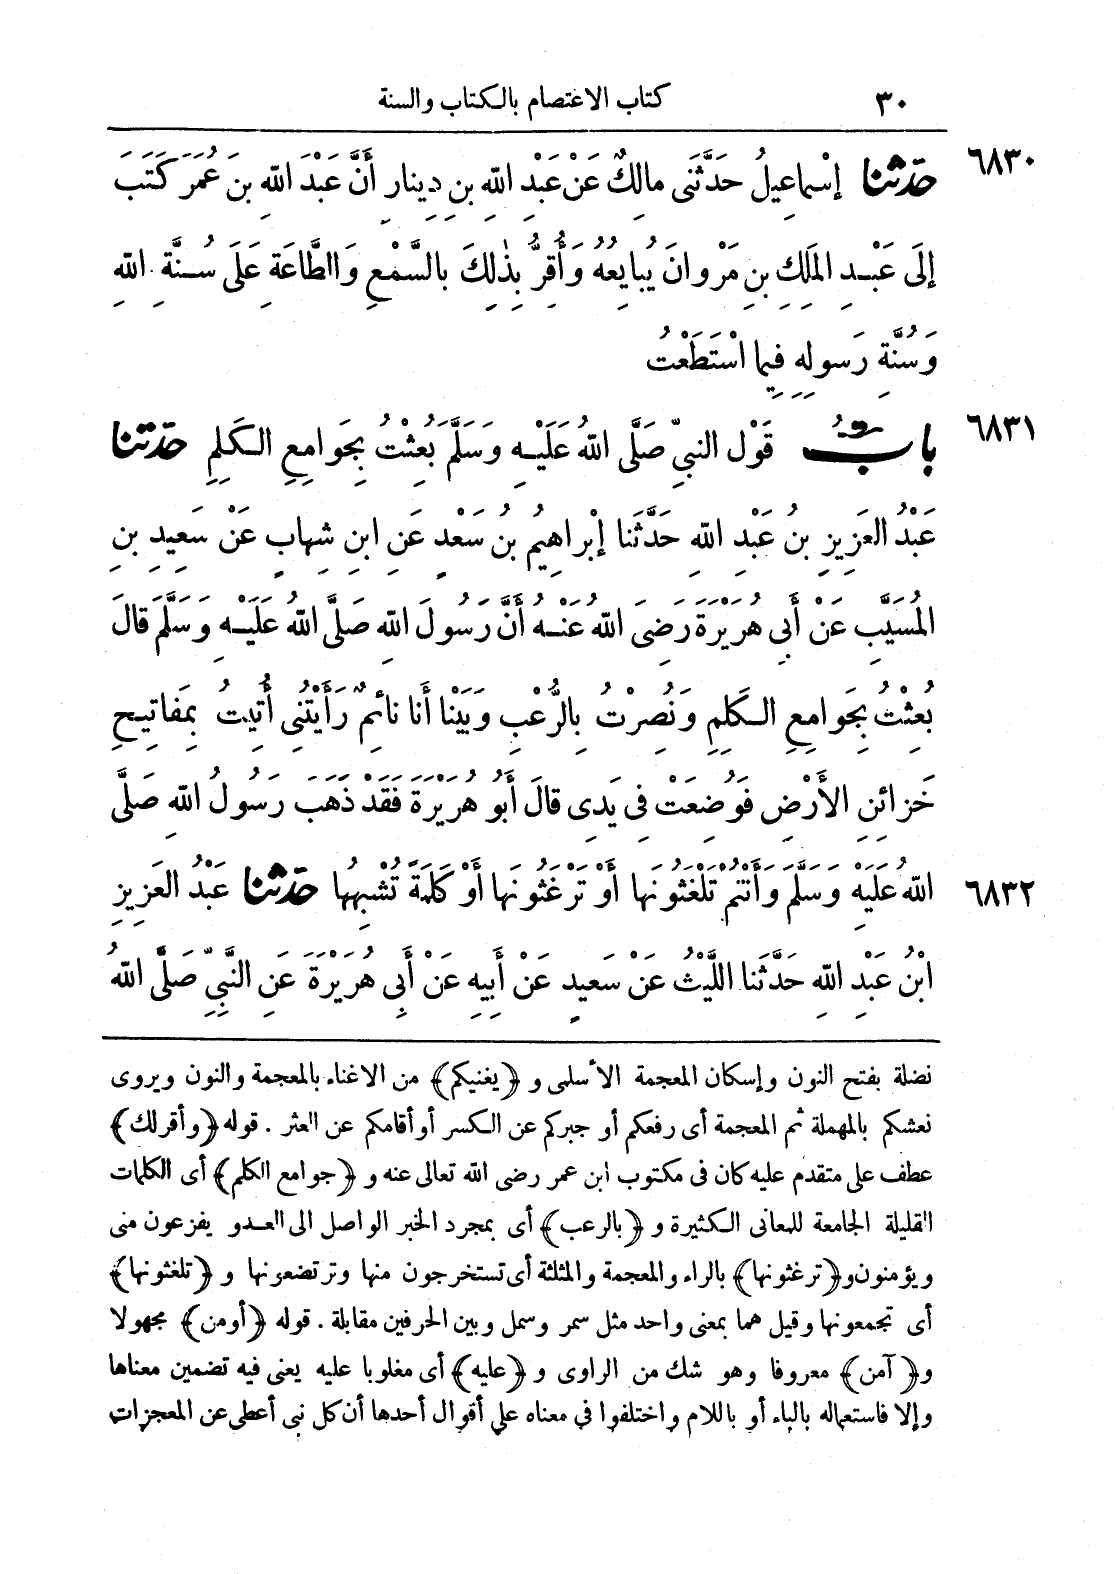 ٣٠ كتاب الاعتصام بالكتاب والسنة
٦٨٣٠ حَدَّثَنَا إِسْمَاعِيلُ حَدَّثَنِى مَالِكٌ عَنْ عَبْدِ اللهِ بنِ دِينَارٍ أَنَّ عَبْدَ اللهِ بنَ عُمَرَ كَتَبَ
إِلَى عَبْدِ المَلِكِ بنِ مَرْوَانَ يُبَايِعُهُ وَأُقِرُّ بِذٰلِكَ بِالسَّمْعِ وَالطَّاعَةِ عَلَى سُنَّةِ اللهِ
وَسُنَّةِ رَسُولِهِ فِيمَا اسْتَطَعْتُ
٦٨٣١ بابُ قَوْلِ النبىِّ صَلَّى اللهُ عَلَيْهِ وَسَلَّمَ بُعِثْتُ بِجَوَامِعِ الكَلِمِ حَدَّثَنَا
عَبْدُ العَزِيزِ بنُ عَبْدِ اللهِ حَدَّثَنَا إِبْرَاهِيمُ بنُ سَعْدٍ عَنِ ابنِ شِهَابٍ عَنْ سَعِيدِ بنِ
المُسَيَّبِ عَنْ أَبِى هُرَيْرَةَ رَضِىَ اللهُ عَنْهُ أَنَّ رَسُولَ اللهِ صَلَّى اللهُ عَلَيْهِ وَسَلَّمَ قَالَ
بُعِثْتُ بِجَوَامِعِ الكَلِمِ وَنُصِرْتُ بِالرُّعْبِ وَبَيْنَا أَنَا نَائِمٌ رَأَيْتُنِى أُتِيتُ بِمَفَاتِيحِ
خَزَائِنِ الأَرْضِ فَوُضِعَتْ فِى يَدِى قَالَ أَبُو هُرَيْرَةَ فَقَدْ ذَهَبَ رَسُولُ اللهِ صَلَّى
٦٨٣٢ اللهُ عَلَيْهِ وَسَلَّمَ وَأَنْتُمْ تَلْغَثُونَهَا أَوْ تَرْغَثُونَهَا أَوْ كَلِمَةً تُشْبِهُهَا حَدَّثَنَا عَبْدُ العَزِيزِ
ابْنُ عَبْدِ اللهِ حَدَّثَنَا اللَّيْثُ عَنْ سَعِيدٍ عَنْ أَبِيهِ عَنْ أَبِى هُرَيْرَةَ عَنِ النَّبِىِّ صَلَّى اللهُ
نضلة بفتح النون وإسكان المعجمة الأسلمى و ﴿يغنيكم﴾ من الاغناء بالمعجمة والنون ويروى
نعشكم بالمهملة ثم المعجمة أى رفعكم أو جبركم عن الكسر أو أقامكم عن العثر . قوله ﴿وأقرلك﴾
عطف على متقدم عليه كان فى مكتوب ابن عمر رضى الله تعالى عنه و ﴿جوامع الكلم﴾ أى الكلمات
القليلة الجامعة للمعانى الكثيرة و ﴿بالرعب﴾ أى بمجرد الخبر الواصل الى العدو يفزعون منى
ويؤمنون و﴿ترغثونها﴾ بالراء والمعجمة والمثلثة أى تستخرجون منها وترتضعونها و ﴿تلغثونها﴾
أى تجمعونها وقيل هما بمعنى واحد مثل سمر وسمل وبين الحرفين مقابلة . قوله ﴿أومن﴾ مجهولا
و﴿آمن﴾ معروفا وهو شك من الراوى و ﴿عليه﴾ أى مغلوبا عليه يعنى فيه تضمين معناها
وإلا فاستعماله بالباء أو باللام واختلفوا فى معناه على أقوال أحدها أن كل نبى أعطى عن المعجزات